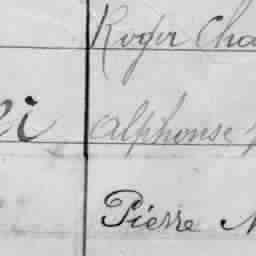 Roger Cha
Alphonse
Pierre